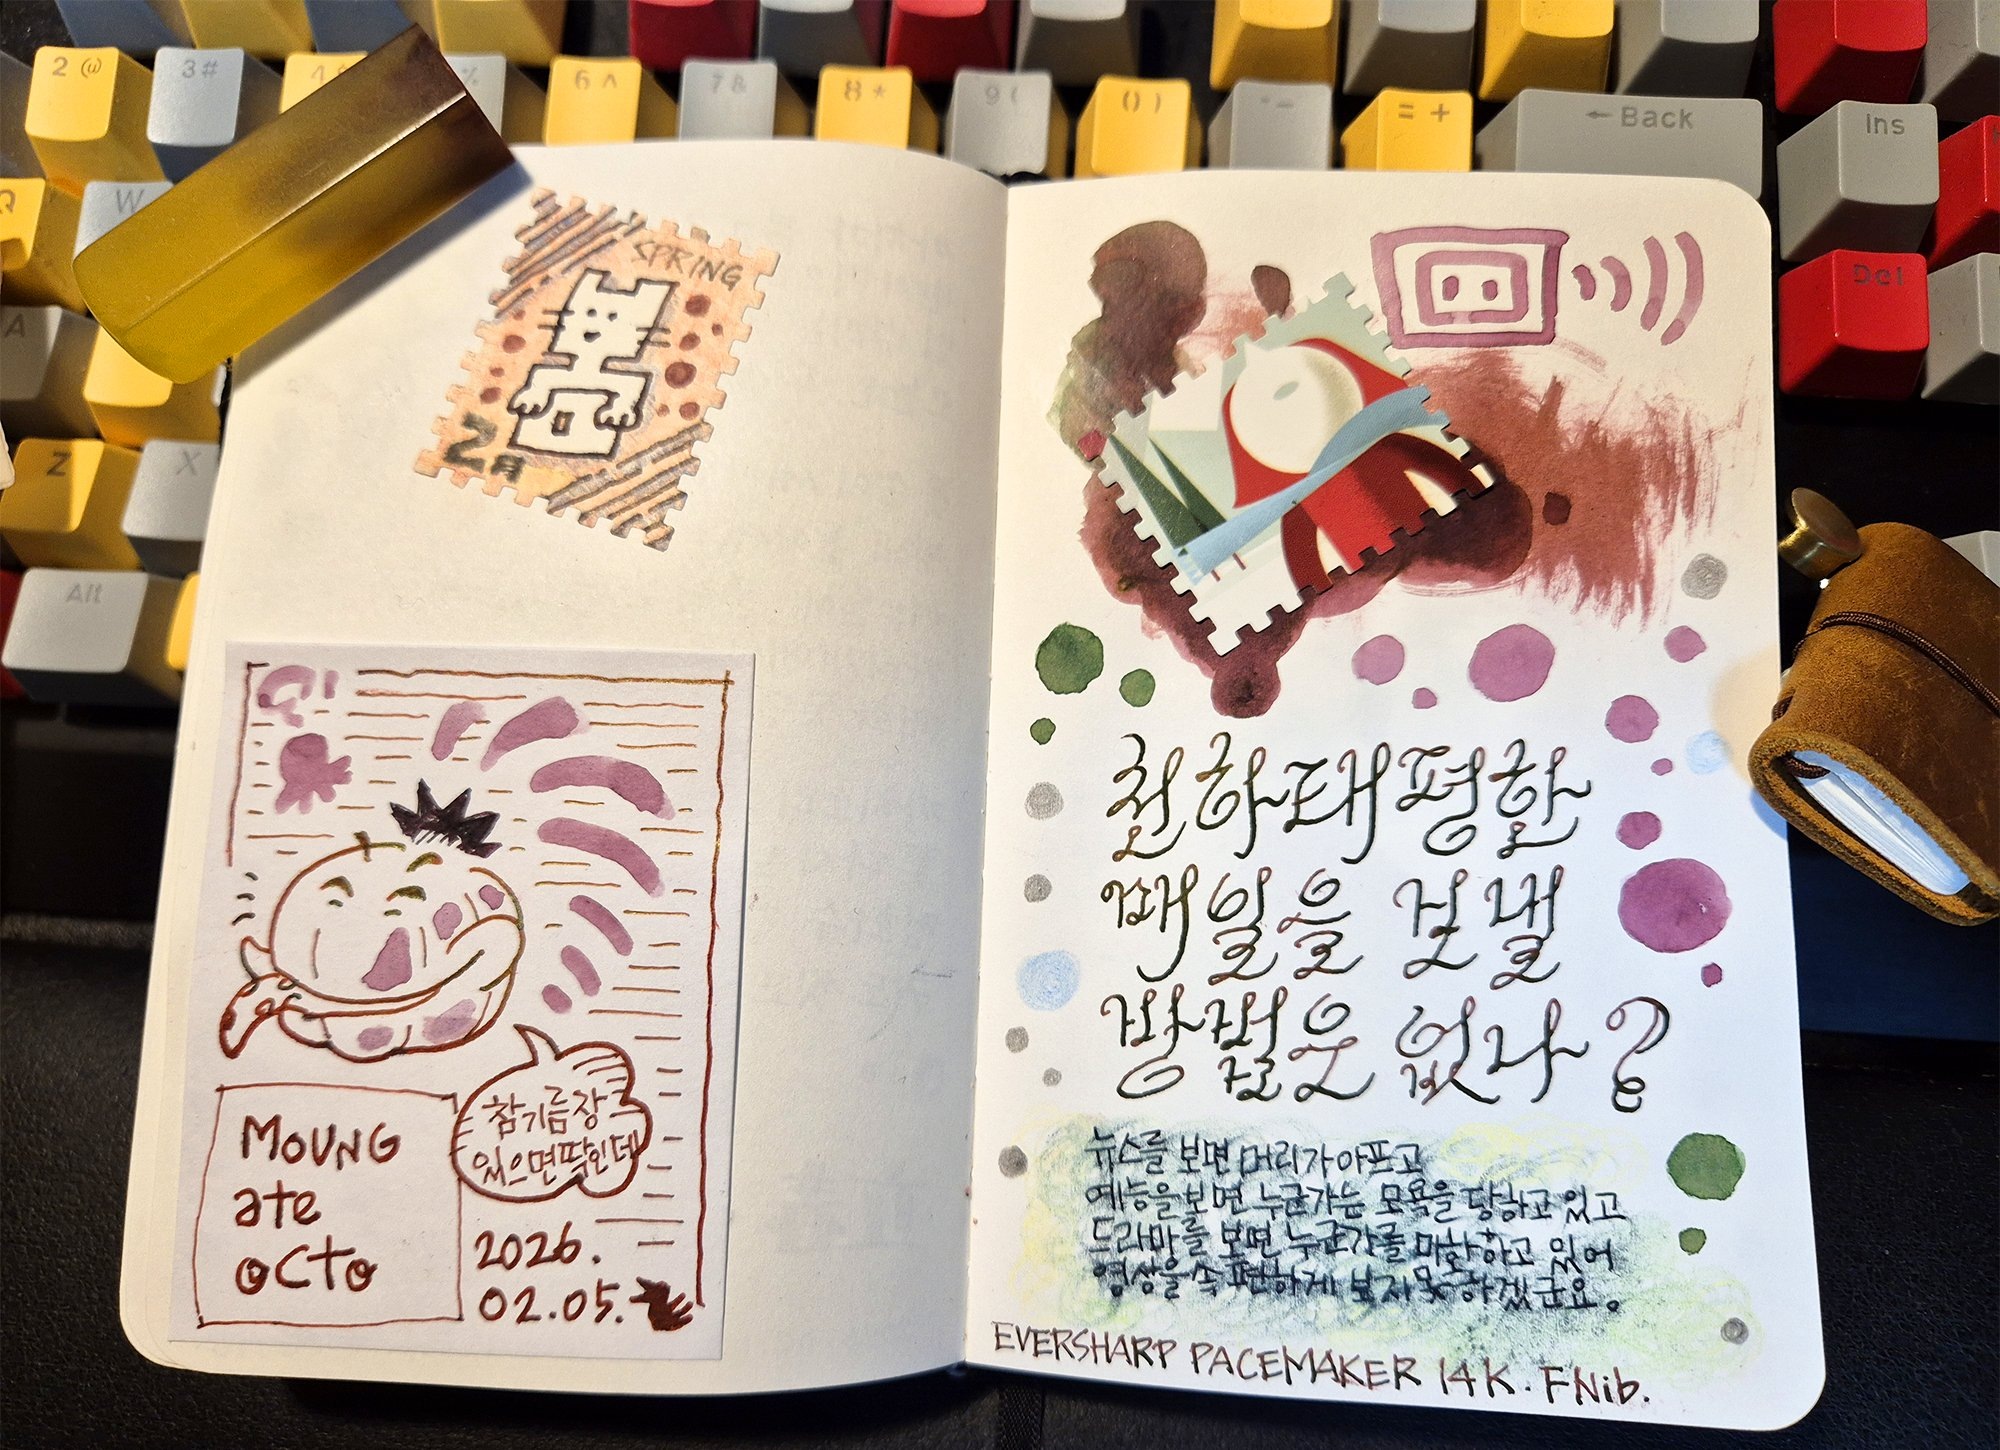 2 @
3 #
6 ^
7 &
8 *
9 (
0 )
- _
= +
←Back
Ins
Q
W
Del
A
Z
X
Alt
SPRING
2月
MOUNG
ate
octo
참기름장
있으면딱인데
2026.
02.05.
천하태평한
매일을 보낼
방법은 없나?
뉴스를 보면 머리가 아프고
예능을 보면 누군가는 모욕을 당하고 있고
드라마를 보면 누군가를 미화하고 있어
영상을 속 편하게 보지 못하겠군요。
EVERSHARP PACEMAKER 14K. F Nib.